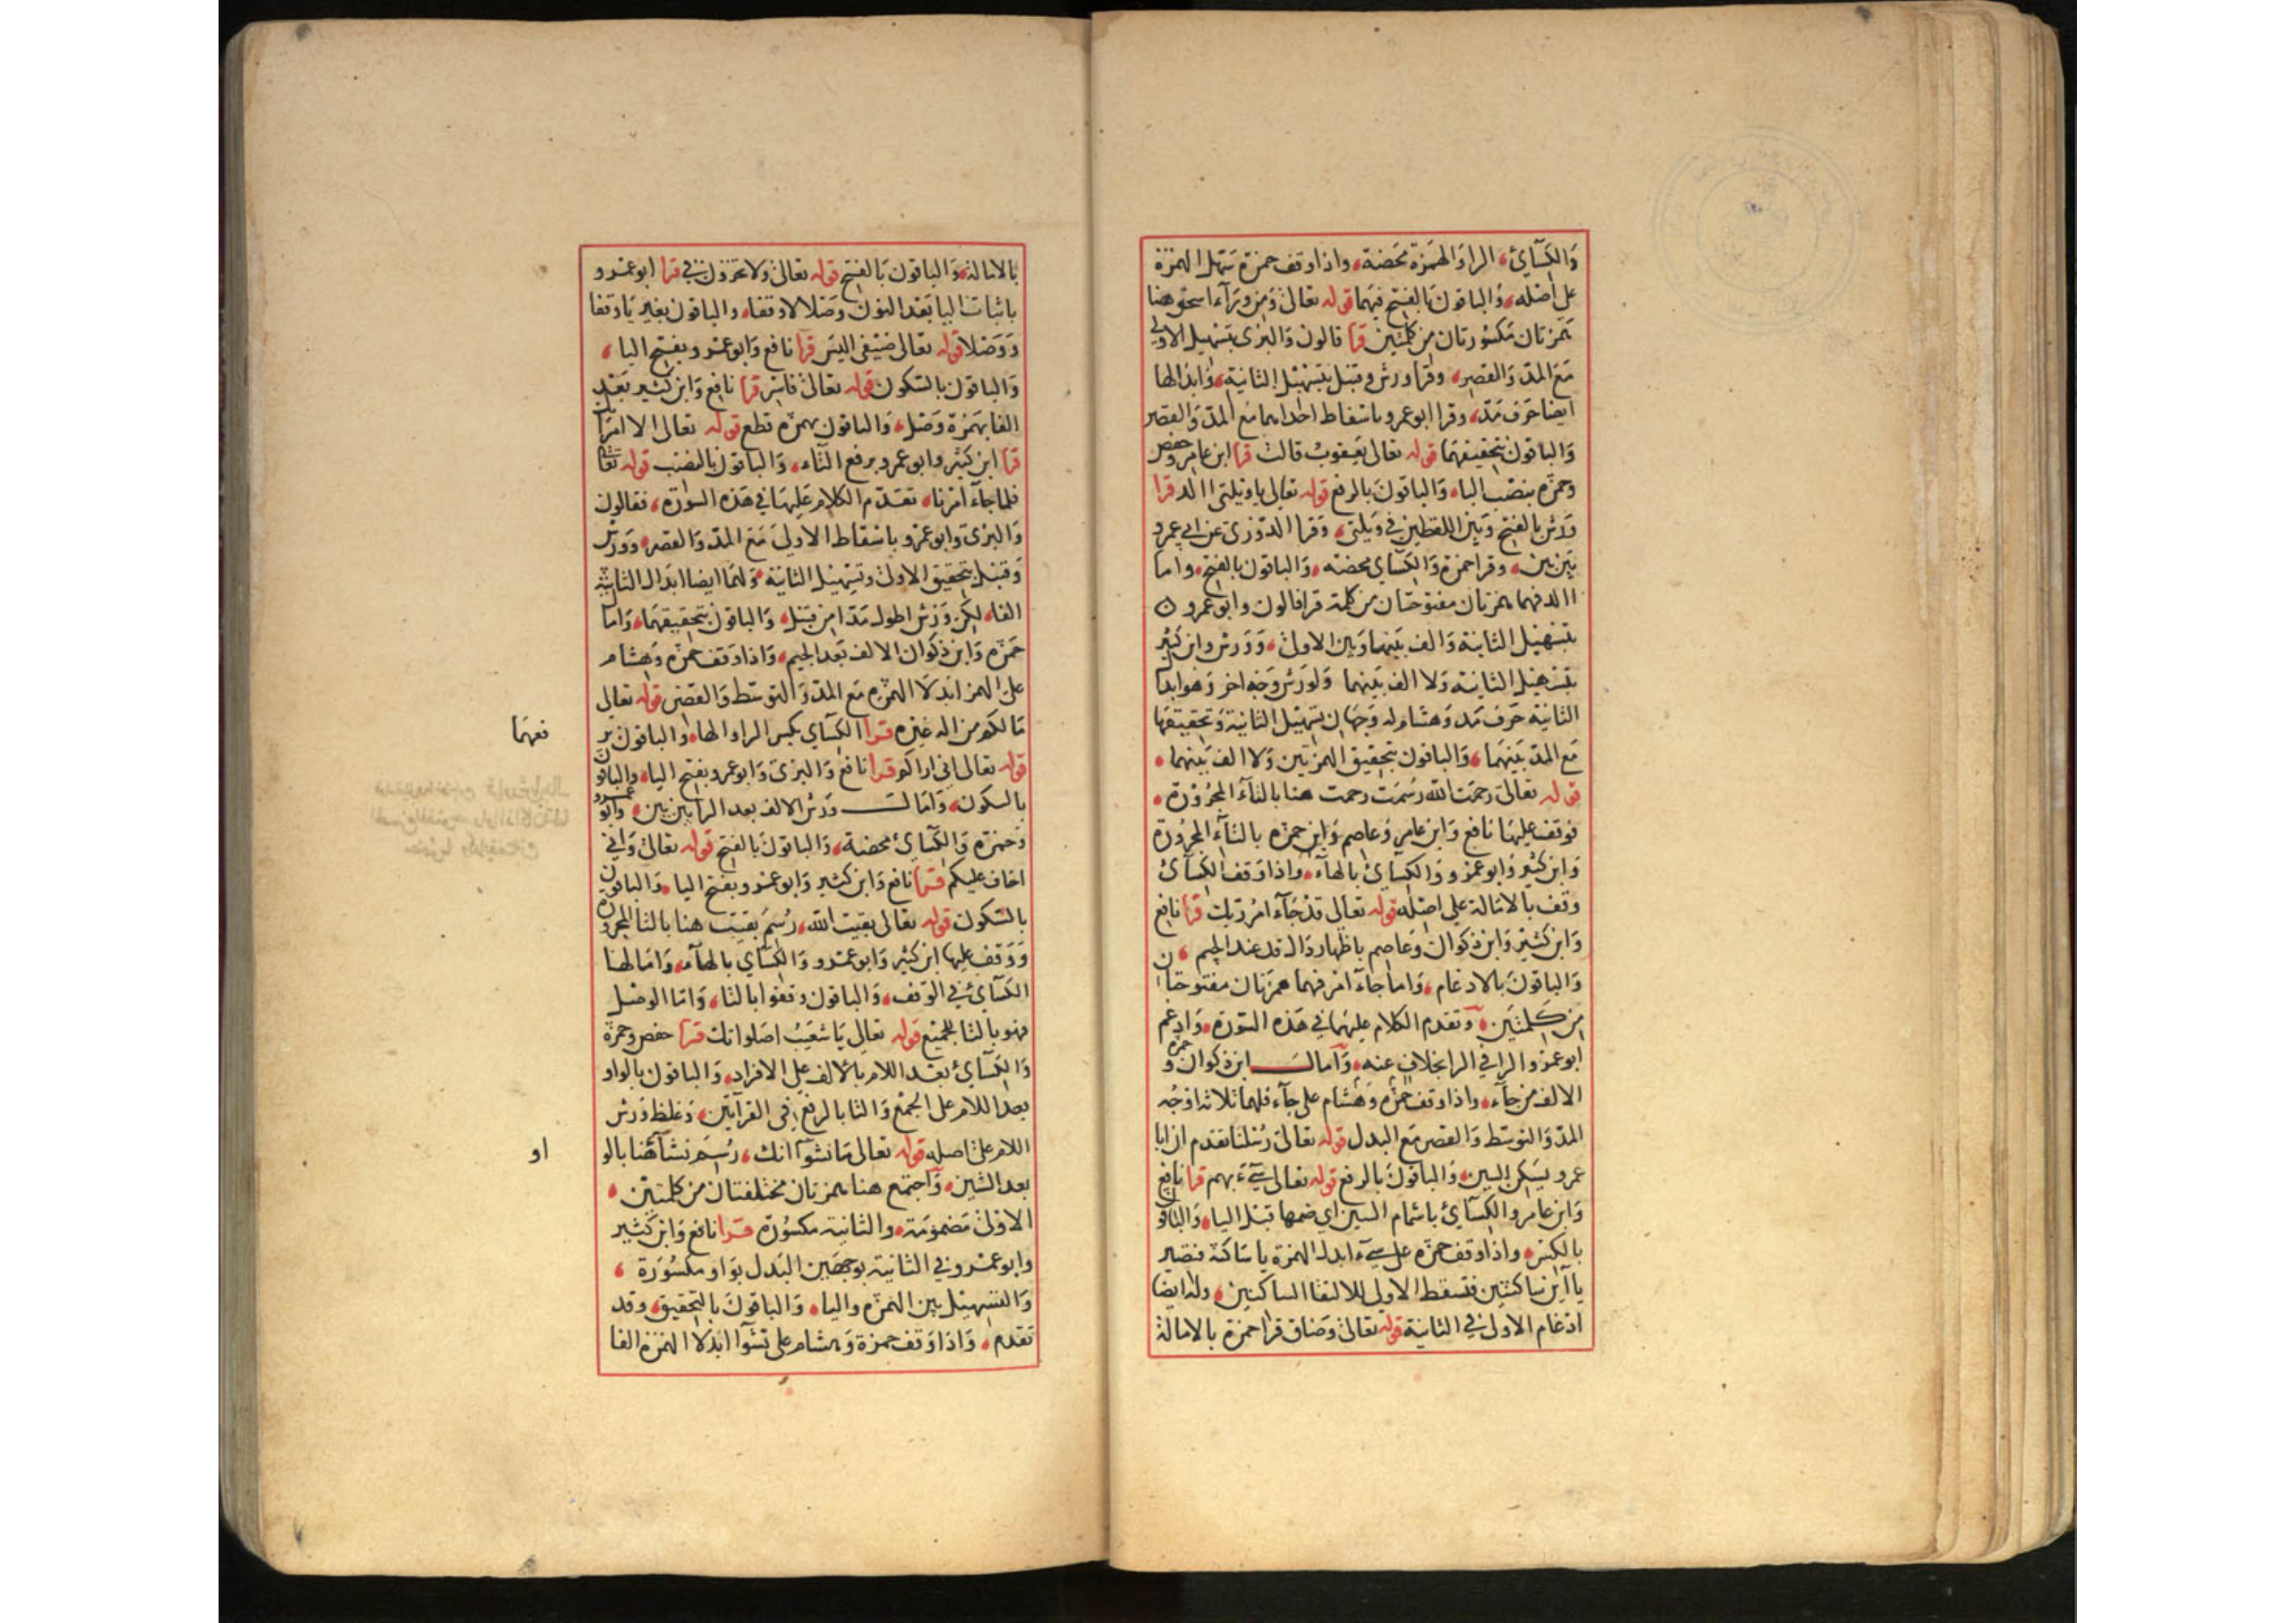 والكسائي الرا والهمزة محضة واذا وقف حمزة سهل الهمزة
على اصله والباقون بالفتح فيهما قوله تعالى ومن ورآء اسحق هنا
همزتان مكسورتان من كلمتين قرا قالون والبزي بتسهيل الاولى
مع المد والقصر وقرا ورش وقنبل بتسهيل الثانية وابدالها
ايضا حرف مد وقرا ابوعمرو باسقاط احداهما مع المد والقصر
والباقون بتحقيقهما قوله تعالى يعقوب قالت قرا ابن عامر وحفص
وحمزه بنصب البا والباقون بالرفع قوله تعالى ياويلتي االد قرا
ورش بالفتح وبين اللفظين في ويلتى وقرا الدوري عن ابي عمرو
بين بين وقرا حمزة والكسآي محضه والباقون بالفتح واما
االد فهما همزتان مفتوحتان من كلمة قرا قالون وابو عمرو
بتسهيل الثانية والف بينهما وبين الاولى وورش وابن كثير
بتسهيل الثانية ولا الف بينهما ولورش وجه اخر وهو ابدال
الثانية حرف مد وهشام له وجهان تسهيل الثانية وتحقيقها
مع المد بينهما والباقون بتحقيق الهمزتين ولا الف بينهما
قوله تعالى رحمت الله رسمت رحمت هنا بالتآء المجرورة
فوقف عليها نافع وابن عامر وعاصم وابن حمزه بالتآء المجرورة
وابن كثير وابو عمرو والكسآئ بالهآء واذا وقف الكسآئ
وقف بالامالة على اصله قوله تعالى قد جآء امر ربك قرا نافع
وابن كثير وابن ذكوان وعاصم باظهار دال قد عند الجيم
والباقون بالادغام واما جآء امر فهما همزتان مفتوحتان
من كلمتين وتقدم الكلام عليهما في هذه السورة وادغم
ابو عمرو الرا في الرا بخلاف عنه وامال ابن ذكوان وحمزة
الالف من جآء واذا وقف حمزه وهشام على جآء فلهما ثلاثه اوجه
المد والتوسط والقصر مع البدل قوله تعالى رسلنا تقدم ان ابا
عمرو يسكن السين والباقون بالرفع قوله تعالى سيٓء بهم قرا نافع
وابن عامر والكسآئ باشمام السين اي ضمها قبل اليا والباقون
بالكسر واذا وقف حمزه على سيٓء ابدل الهمزة يا ساكنة فتصير
ياآين ساكنين فتسقط الاولى للالتقا الساكنين وله ايضا
ادغام الاولى في الثانية قوله تعالى وضاق قرا حمزة بالامالة
بالامالة والباقون بالفتح قوله تعالى ولا تخزون في قرا ابو عمرو
باثبات اليا بعد النون وصلا لا وقفا والباقون بغير يا وقفا
ووصلا قوله تعالى ضيفي اليس قرا نافع وابو عمرو بفتح اليا
والباقون بالسكون قوله تعالى فاسر قرا نافع وابن كثير بعد
الفا بهمزة وصل والباقون بهمزه قطع قوله تعالى الا امراتك
قرا ابن كثير وابو عمرو برفع التآء والباقون بالنصب قوله تعالى
فلما جآء امرنا تقدم الكلام عليها في هذه السورة فقالون
والبزي وابو عمرو باسقاط الاولى مع المد والقصر وورش
وقنبل بتحقيق الاولى وتسهيل الثانية ولهما ايضا ابدال الثانية
الفا لكن ورش اطول مدا من قنبل والباقون بتحقيقهما وامال
حمزه وابن ذكوان الالف بعد الجيم واذا وقف حمزه وهشام
على الهمز ابدلا الهمزه مع المد والتوسط والقصر قوله تعالى
مالكم من اله غيره قرا الكسآي بكسر الرا والها والباقون
فعهما
قوله تعالى اني اراكم قرا نافع والبزي وابو عمرو بفتح اليا والباقون
بالسكون وامالـــــ ورش الالف بعد الرا بين بين وابو عمرو
وحمزة والكسآئ محضة والباقون بالفتح قوله تعالى واني
اخاف عليكم قرا نافع وابن كثير وابو عمرو بفتح اليا والباقون
بالسكون قوله تعالى بقيت الله رسم بقيت هنا بالتا المجرورة
ووقف عليها ابن كثير وابو عمرو والكسآي بالهآء وامالها
الكسآئ في الوقف والباقون وقفوا بالتا واما الوصل
فهو بالتا للجميع قوله تعالى يا شعيب اصلواتك قرا حفص وحمزة
والكسآئ بعد اللام بالالف على الافراد والباقون بالواو
بعد اللام على الجمع والتا بالرفع في القرآءتين وغلظ ورش
اللام على اصله قوله تعالى مانشوآ انك رسم نشآؤ هنا بالو
او
بعد الشين واجتمع هنا همزتان مختلفتان من كلمتين
الاولى مضمومة والثانية مكسورة قرا نافع وابن كثير
وابو عمرو في الثانية بوجهين البدل بواو مكسورة
والتسهيل بين الهمزه واليا والباقون بالتحقيق وقد
تقدم واذا وقف حمزة وهشام على نشوآ ابدلا الهمزة الفا